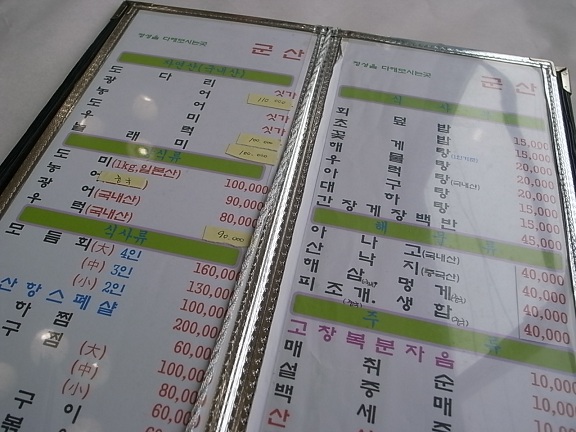 정성을 다해모시는곳
군산
자연산(국내산)
도 다 리 싯가
광 어 110.000
농 어 싯가
도 미 싯가
우 럭 100.000
100.000
도 미(1kg,일본산) 100,000
농 어 90,000
광 어(국내산) 80,000
우 럭(국내산) 90.000
식사류
모 듬 회(大) 4인 160,000
(中) 3인 130,000
(小) 2인 100,000
군산항스페샬 200,000
(大) 60,000
(中) 100,000
(小) 80,000
60,000
구 이
정성을 다해모시는곳
군산
식 사 류
회 덮 밥 15,000
초 밥 15,000
꽃 게 탕 20,000
해 물 탕 20,000
우 럭 탕(국내산) 15,000
아 구 탕 20,000
대 하 탕 15,000
간장게장백반 45,000
해 물 류
아 나 고(국내산) 40,000
산 낙 지(중국산) 40,000
해 삼, 멍 게 40,000
피조개, 생 합 40,000
주 류
고창복분자음
매 취 순 10,000
설 중 매 10,000
백 세
산